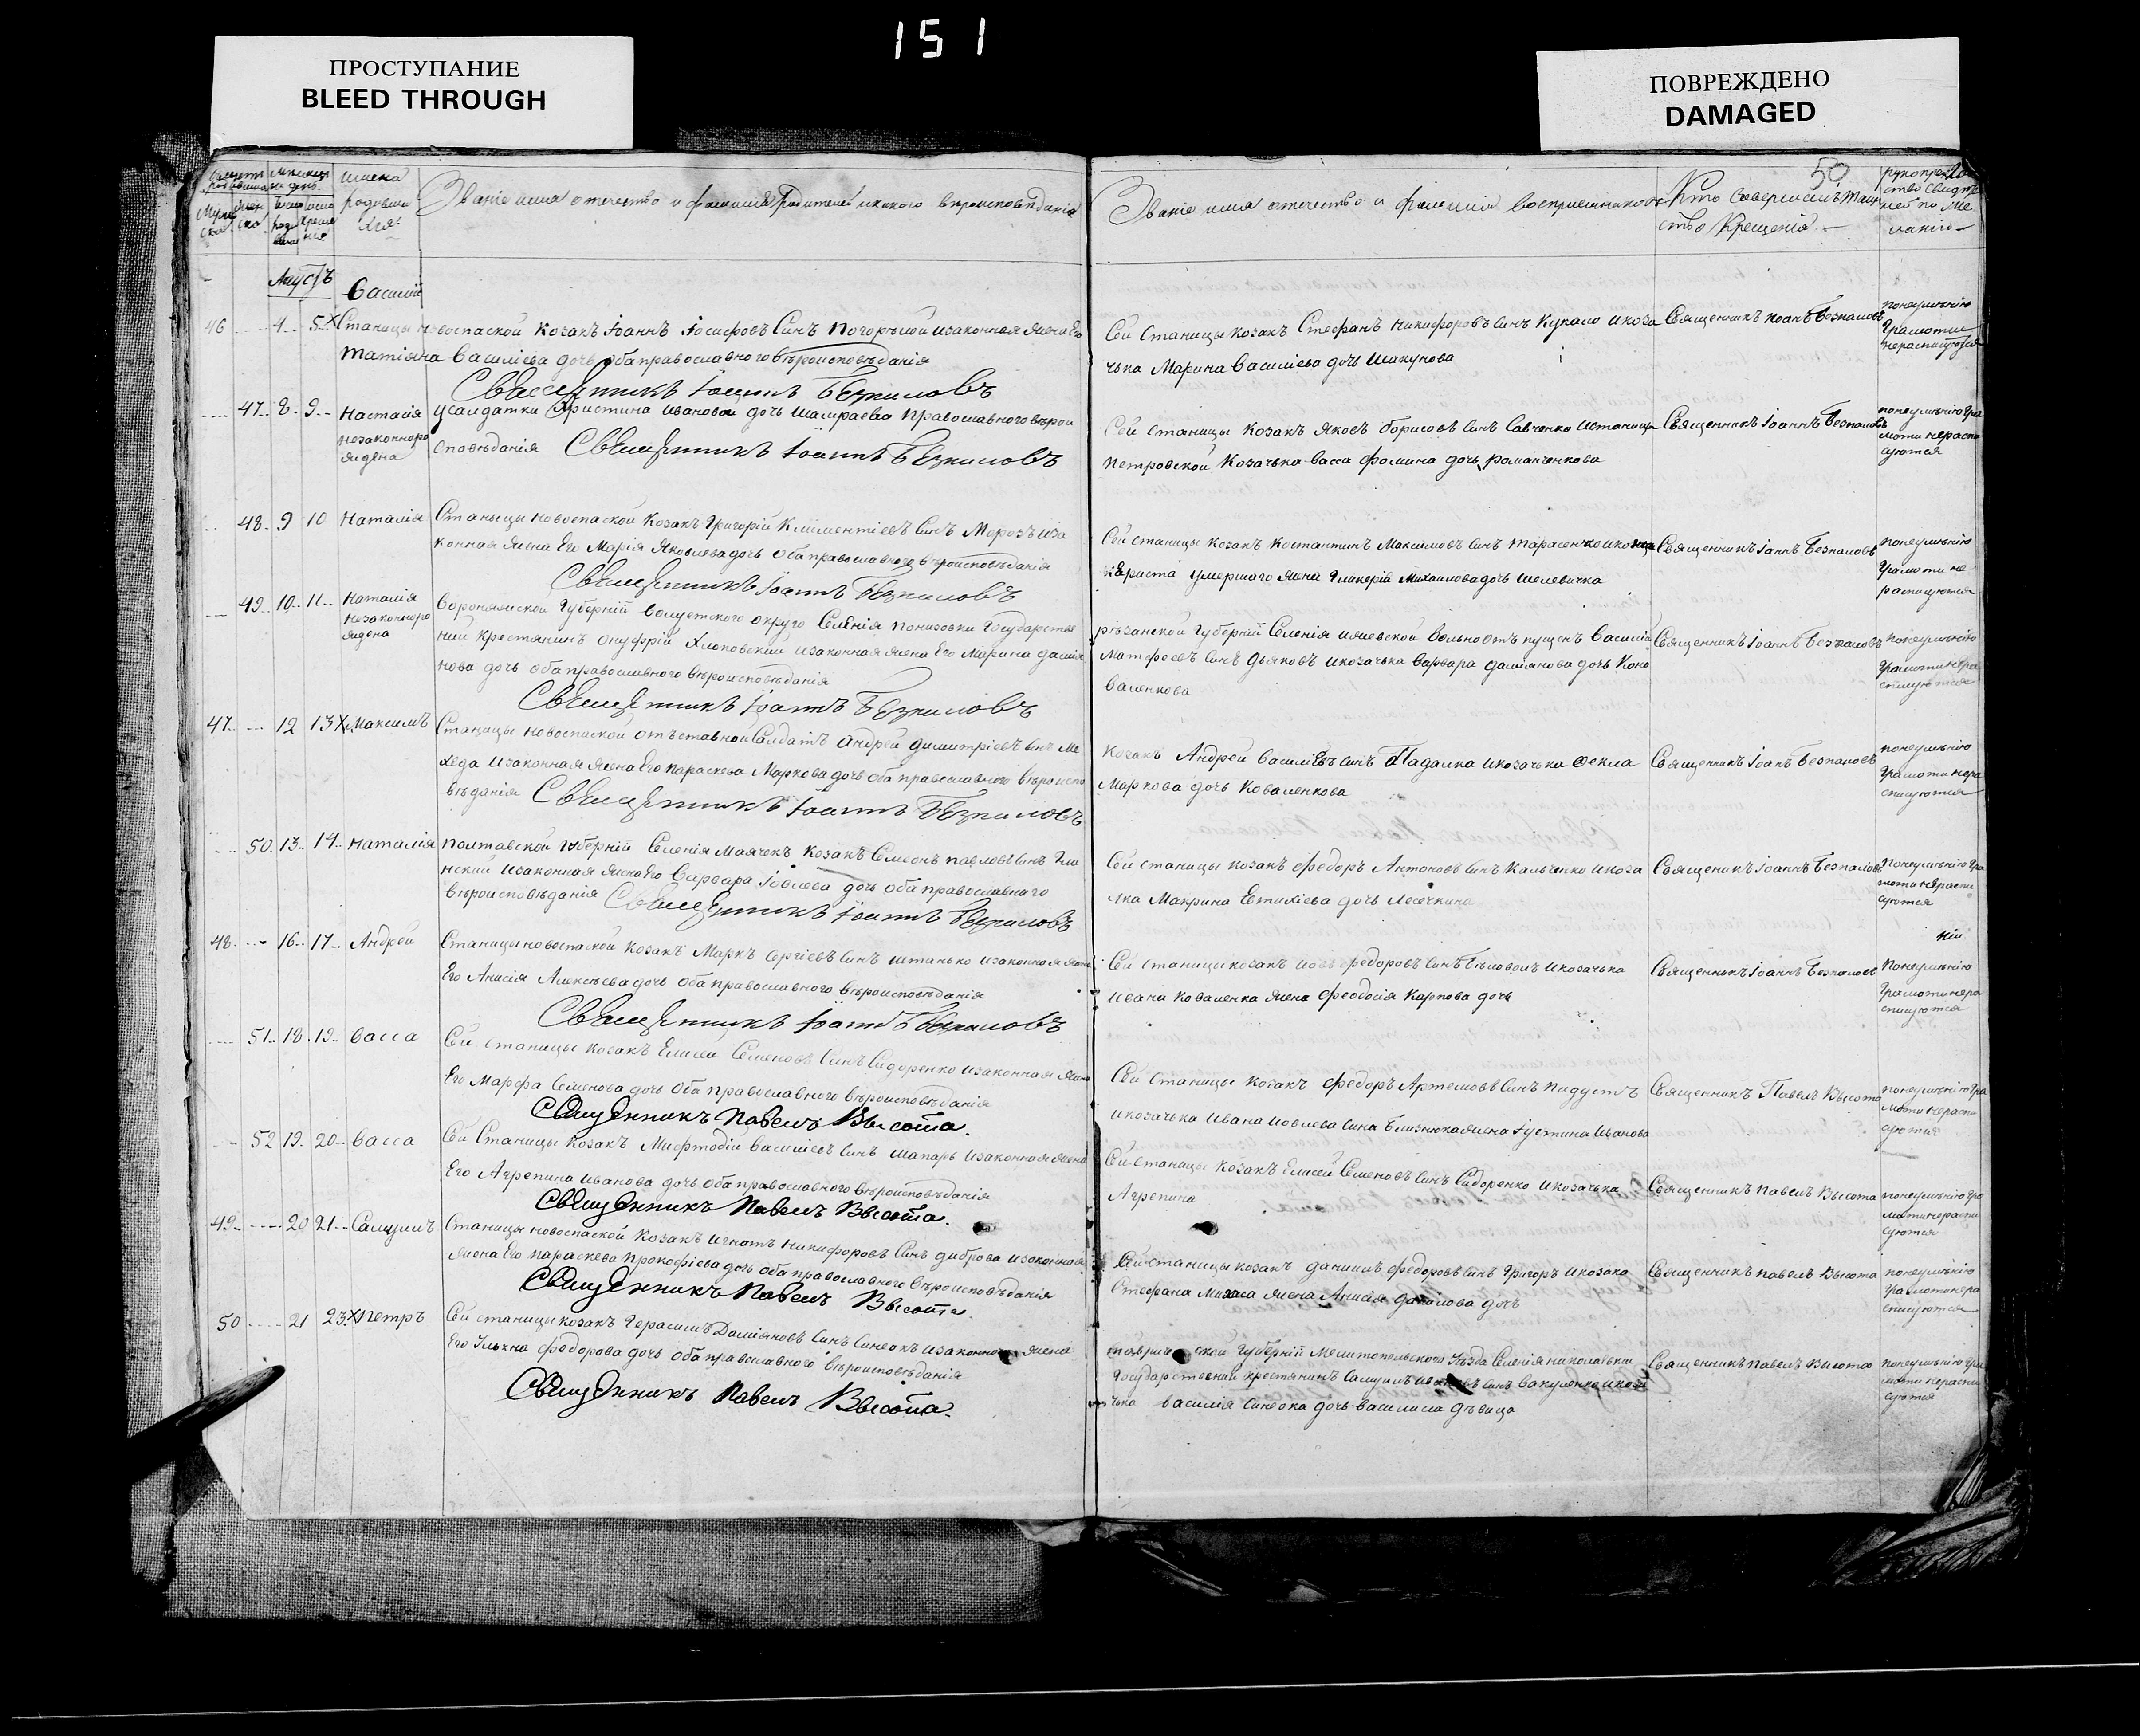 151
ПРОСТУПАНИЕ
BLEED THROUGH
ПОВРЕЖДЕНО
DAMAGED
50
имена родившихся
Званіе имя отечество и фамилія родителей и какого вѣроисповѣданія
Званіе имя отечество и фамилія воспріемниковъ
Кто совершалъ таинство Крещенія
Августъ
46 4 5 Василій
Станицы новоспаской козакъ Іоаннъ Іосифовъ синъ Погорѣлой изаконная жена Его
Татіяна Василіева дочь оба православного вѣроисповѣданія
Священникъ Іоаннъ Безпаловъ
Сей Станицы козакъ Стефанъ Никифоровъ синъ Купало икоза
чька Марина Василіева дочь Шакунова
Священникъ Іоанъ Безпаловъ
понеумѣнію
Грамоти
нерасписуются
47 8 9 Настасія
незаконноро
ждена
Усалдатки Христина Иванова дочь Шамраева Православного вѣрои
сповѣданія Священникъ Іоаннъ Безпаловъ
Сей станицы козакъ Яковъ Борисовъ синъ Савченко истаници
Петровской Козачька Васса Фомина дочь Романченкова
Священникъ Іоаннъ Безпаловъ
понеумѣнію гра
моти нераспи
суются
48 9 10 Наталія
Станыцы новоспаской Козакъ Григорій Климентіевъ синъ Морозъ иза
конная жена Его Марія Яковлева дочь оба православного вѣроисповѣданія
Священникъ Іоаннъ Безпаловъ
Сей станицы козакъ Костантинъ Максимовъ синъ Тарасенко
умершого жена Гликерія Михаилова дочь Шелевичка
Священникъ Іаннъ Безпаловъ
понеумѣнію
Грамоти не
расписуются
49 10 11 Наталія
незаконноро
ждена
Воронежской Губерній округо Селѣнія Понизовки Государстве
ний крестянинъ Онуфрій Хлоповскій изаконная жена Его Марина Даміа
нова дочь оба православного вѣроисповѣданія
Священникъ Іоаннъ Безпаловъ
рѣзанской Губерній Селенія вольноотъпущенъ Василій
Матфеевъ синъ Дьяковъ икозачька Варвара Даміянова дочь Коно
валенкова
Священникъ Іоаннъ Безпаловъ
понеумѣнію
Грамоти нера
списуются
47 12 13 Максимъ
Станицы новоспаской отъставной Салдатъ Андрей Димитріевъ синъ Ме
изаконная жена Его Параскева Маркова дочь оба православного вѣроиспо
вѣданія Священникъ Іоаннъ Безпаловъ
Козакъ Андрей Василіевъ синъ Падалка икозачька Фекла
Маркова дочь Коваленкова
Священникъ Іоанъ Безпаловъ
понеумѣнію
Грамоти нера
списуются
50 13 14 Наталія
Полтавской Губерній Селенія Маячокъ Козакъ Семіонъ Павловъ синъ Гли
нский изаконная жена Его Варвара Іовлева дочь оба православнаго
вѣроисповѣданія Священникъ Іоаннъ Безпаловъ
Сей станицы козакъ Федоръ Антоновъ синъ Кальченко икоза
чка Макрина Евтихіева дочь Лесечкина
Священикъ Іоаннъ Безпаловъ
Понеумѣнію гра
моти нераспи
суются
48 16 17 Андрей
Станицы новоспаской козакъ Маркъ Сергіевъ синъ Штанько изаконная жена
Его Анасія Алексѣева дочь оба православного вѣроисповѣданія
Священникъ Іоаннъ Безпаловъ
Сей станицы козакъ Федоровъ синъ Бѣловолъ икозачька
Ивана Коваленка жена Феодосія Карпова дочь
Священникъ Іоаннъ Безпаловъ
Понеумѣнію
Грамоти нера
списуются
51 18 19 Васса
Сей станицы козакъ Елисей Семеновъ Синъ Сидоренко изаконная жена
Его Марфа Семенова дочь оба православного вѣроисповѣданія
Священникъ Павелъ Высота.
Сей станицы козакъ Федоръ Артемовъ синъ
икозачька Ивана Іовлева сина Близнюка жена Іустина Иванова
Священникъ Павелъ Высота
понеумѣнію гра
моти нераспи
суются
52 19 20 Васса
Сей Станицы козакъ Мифтодій Василіевъ синъ Шапарь изаконная жена
Его Агрепина Иванова дочь оба православного вѣроисповѣданія
Священникъ Павелъ Высота.
Сей станицы козакъ Елисей Семеновъ синъ Сидоренко икозачька
Агрепина
Священникъ Павелъ Высота
понеумѣнію гра
моти нераспи
суются
49 20 21 Самуилъ
Станицы новоспаской Козакъ Игнатъ Никифоровъ Синъ Диброва изаконная
жена Его Параскева Прокофіева дочь оба православного вѣроисповѣданія
Священникъ Павелъ Высота.
Сей станицы козакъ Даниилъ Федоровъ синъ Григоръ икозака
Стефана жена Анисія Данілова дочь
Священникъ Павелъ Высота
понеумѣнію
Грамоти нера
списуются
50 21 23 Петръ
Сей станицы козакъ Герасимъ Даміяновъ Синъ Синеокъ изаконная жена
Его Ульяна Федорова дочь оба православного вѣроисповѣданія
Священникъ Павелъ Высота.
таврической Губерній Мелитопольского уѣзда Селенія николаѣвки
Государствений крестянинъ Самуилъ синъ Вакуленко икоза
чька Василія Синеока дочь Василиса дѣвица
Священникъ Павелъ Высота
понеумѣнію гра
моти нераспи
суются